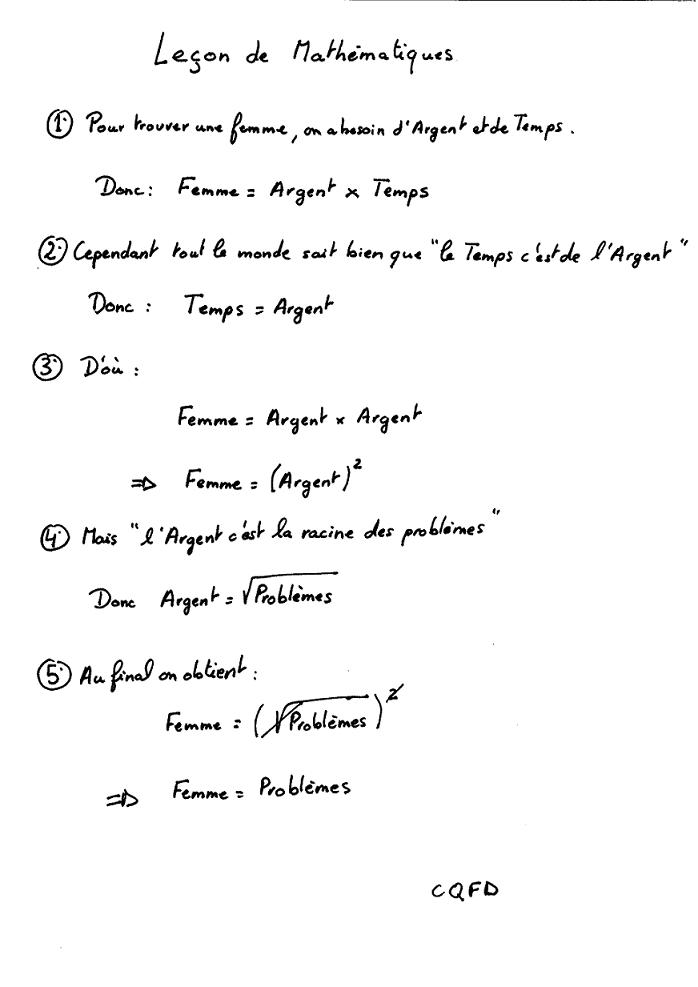 Leçon de Mathématiques
① Pour trouver une femme, on a besoin d'Argent et de Temps.
Donc : Femme = Argent x Temps
② Cependant tout le monde sait bien que "le Temps c'est de l'Argent"
Donc : Temps = Argent
③ D'où :
Femme = Argent x Argent
⇒ Femme = (Argent)²
④ Mais "l'Argent c'est la racine des problèmes"
Donc Argent = √Problèmes
⑤ Au final on obtient :
Femme = (√Problèmes)²
⇒ Femme = Problèmes
CQFD